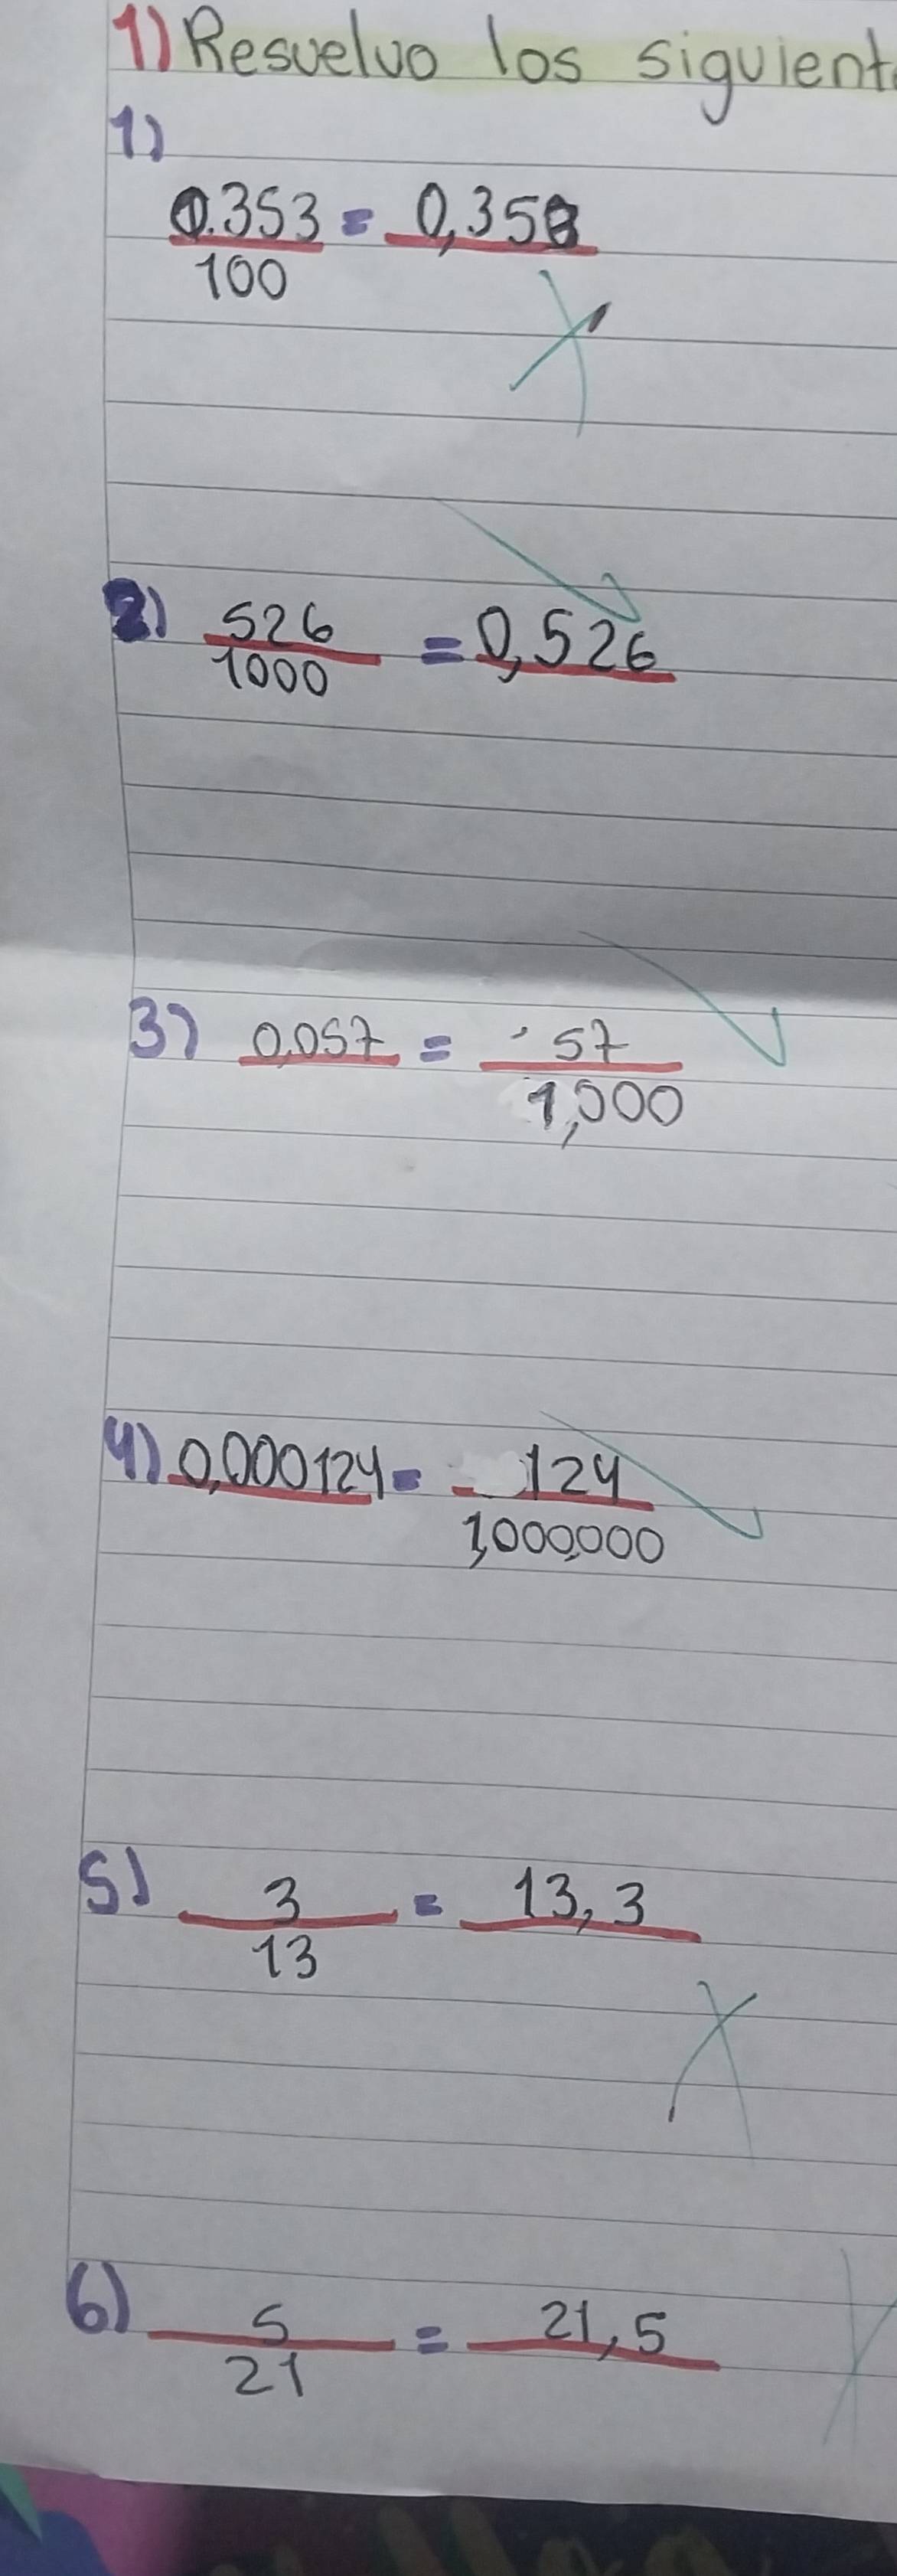 1) Resuelvo los siguient
1)
0.353 = 0,353
100
2) 526 = 0,526
1000
3) 0,057 = 57
1,000
4) 0,000124 = 124
1,000,000
5) 3 = 13,3
13
6) 5 = 21,5
21